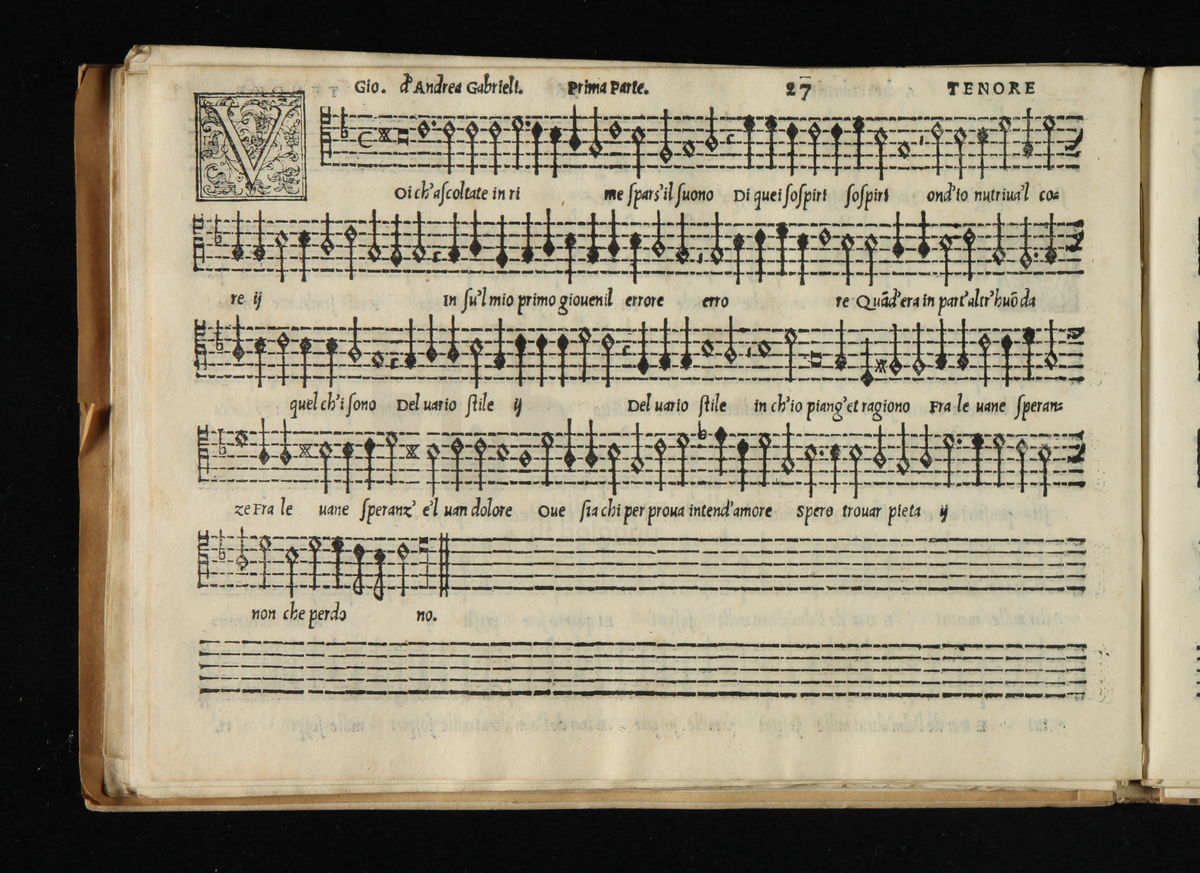 Gio. d'Andrea Gabrieli. Prima Parte. 27 TENORE
VOi ch'ascoltate in ri me spars'il suono Di quei sospiri sospiri ond'io nutriua'l co=
re ij In su'l mio primo giouenil errore erro re Quãd'era in part'altr'huõ da
quel ch'i sono Del uario stile ij Del uario stile in ch'io piang'et ragiono Fra le uane speran=
ze Fra le uane speranz' e'l uan dolore Oue sia chi per proua intend'amore Spero trouar pieta ij
non che perdo no.